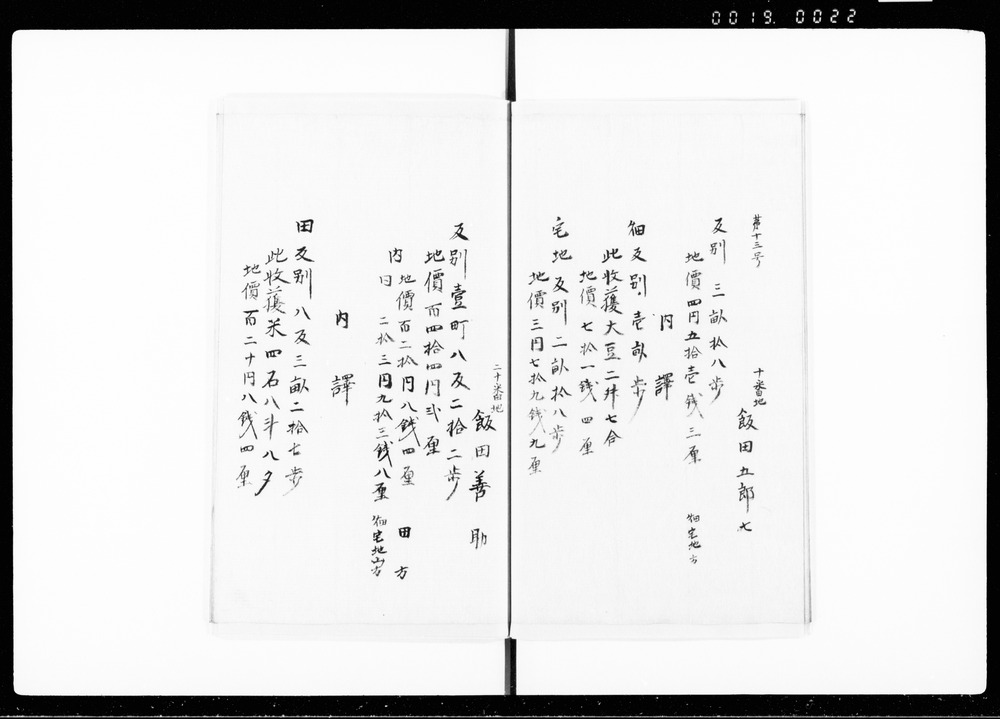 0019.0022
第十三号
十番地
飯田五郎七
反別 三畝拾八歩
地價四円五拾壱銭三厘
畑宅地方
内譯
畑反別壱畝歩
此收獲大豆二拝七合
地價七拾一銭四厘
宅地反別二畝拾八歩
地價三円七拾九銭九厘
二十番地
飯田善助
反別壹町八反二拾二歩
地價百四拾四円弐厘
内 地價百二拾円八銭四厘 田方
内 二拾三円九拾三銭八厘 畑宅地方
内譯
田反別八反三畝二拾七歩
此收獲米四石八斗八夕
地價百二十円八銭四厘